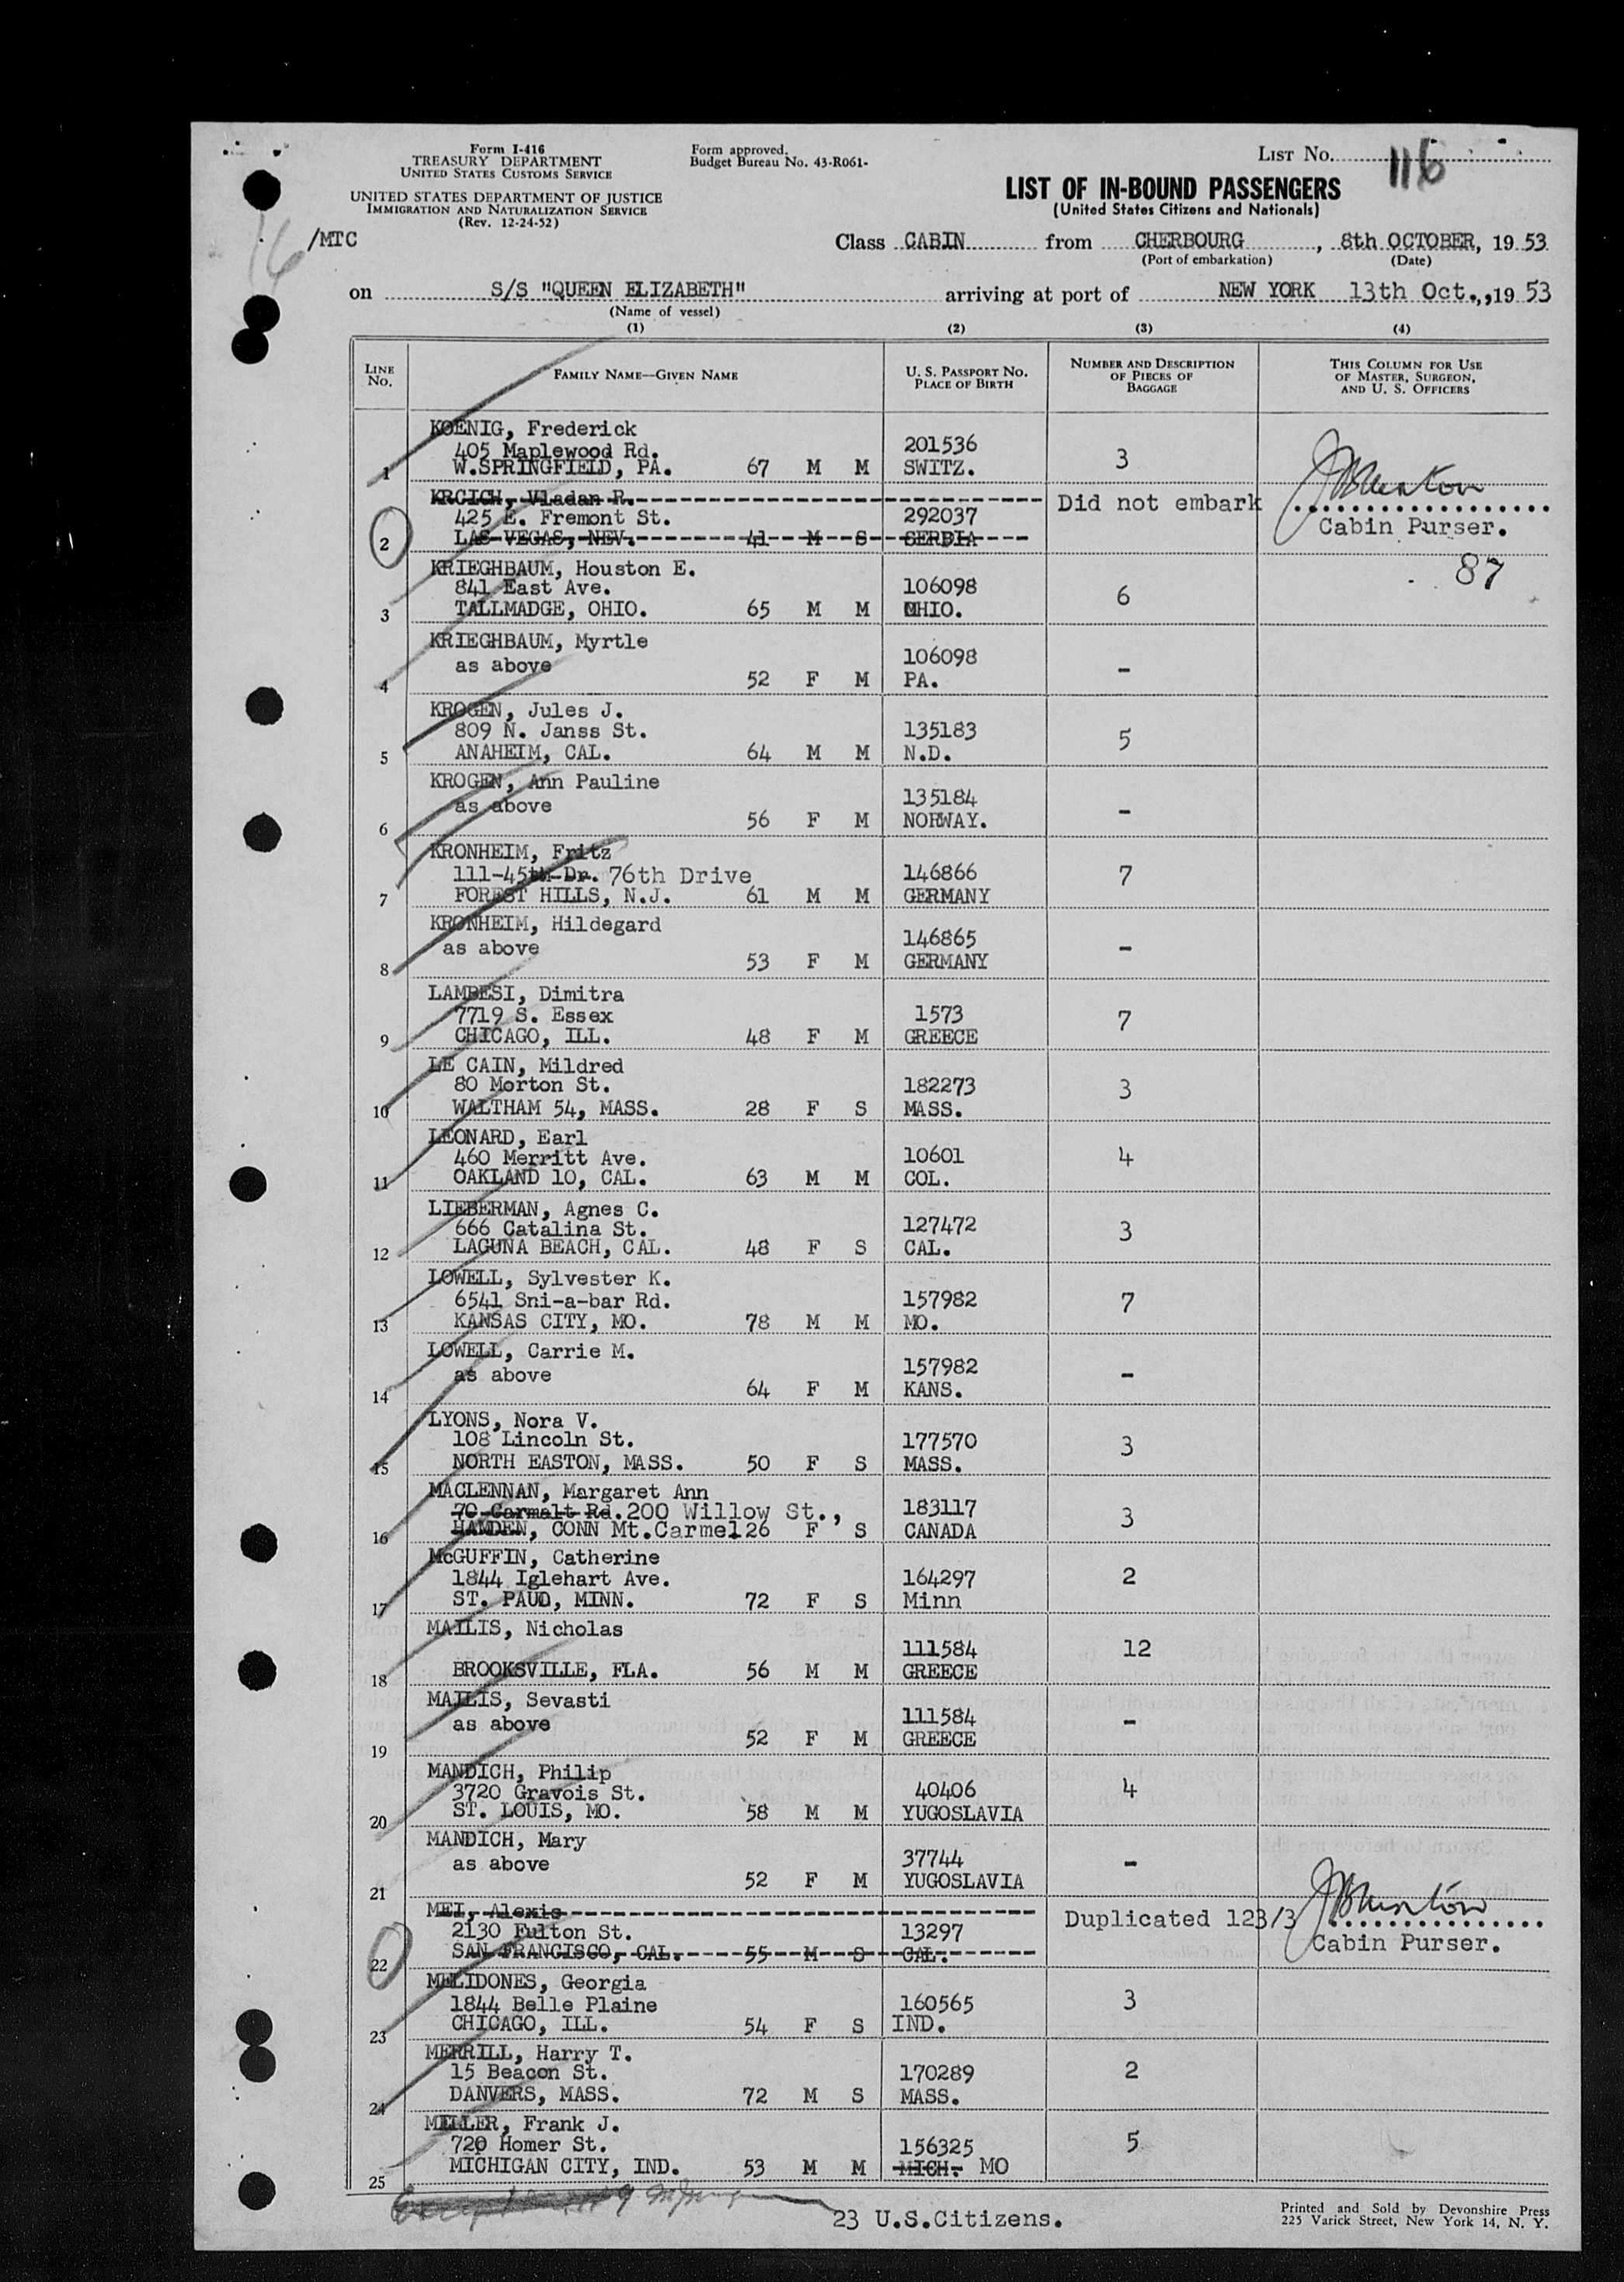 Form I-416
TREASURY DEPARTMENT
UNITED STATES CUSTOMS SERVICE
UNITED STATES DEPARTMENT OF JUSTICE
IMMIGRATION AND NATURALIZATION SERVICE
(Rev. 12-24-52)
Form approved.
Budget Bureau No. 43-R061-
LIST NO. 116
LIST OF IN-BOUND PASSENGERS
(United States Citizens and Nationals)
16
/MTC
Class CABIN from CHERBOURG, 8th OCTOBER, 1953
(Port of embarkation) (Date)
on S/S "QUEEN ELIZABETH" arriving at port of NEW YORK 13th Oct.,,1953
(Name of vessel)
(1) (2) (3) (4)
LINE No. FAMILY NAME—GIVEN NAME U. S. PASSPORT NO. PLACE OF BIRTH NUMBER AND DESCRIPTION OF PIECES OF BAGGAGE THIS COLUMN FOR USE OF MASTER, SURGEON, AND U. S. OFFICERS
KOENIG, Frederick
405 Maplewood Rd. 201536 3
1 W.SPRINGFIELD, PA. 67 M M SWITZ.
KRCICH, Vladan R. Did not embark
425 E. Fremont St. 292037 Cabin Purser.
2 LAS VEGAS, NEV. 41 M S SERBIA
87
KRIEGHBAUM, Houston E.
841 East Ave. 106098 6
3 TALLMADGE, OHIO. 65 M M OHIO.
KRIEGHBAUM, Myrtle
as above 106098 -
4 52 F M PA.
KROGEN, Jules J.
809 N. Janss St. 135183 5
5 ANAHEIM, CAL. 64 M M N.D.
KROGEN, Ann Pauline
as above 135184 -
6 56 F M NORWAY.
KRONHEIM, Fritz
111-45th Dr. 76th Drive 146866 7
7 FOREST HILLS, N.J. 61 M M GERMANY
KRONHEIM, Hildegard
as above 146865 -
8 53 F M GERMANY
LAMBESI, Dimitra
7719 S. Essex 1573 7
9 CHICAGO, ILL. 48 F M GREECE
LE CAIN, Mildred
80 Morton St. 182273 3
10 WALTHAM 54, MASS. 28 F S MASS.
LEONARD, Earl
460 Merritt Ave. 10601 4
11 OAKLAND 10, CAL. 63 M M COL.
LIEBERMAN, Agnes C.
666 Catalina St. 127472 3
12 LAGUNA BEACH, CAL. 48 F S CAL.
LOWELL, Sylvester K.
6541 Sni-a-bar Rd. 157982 7
13 KANSAS CITY, MO. 78 M M MO.
LOWELL, Carrie M.
as above 157982 -
14 64 F M KANS.
LYONS, Nora V.
108 Lincoln St. 177570 3
15 NORTH EASTON, MASS. 50 F S MASS.
MACLENNAN, Margaret Ann
70 Carmalt Rd. 200 Willow St., 183117 3
16 HAMDEN, CONN Mt.Carmel 26 F S CANADA
McGUFFIN, Catherine
1844 Iglehart Ave. 164297 2
17 ST. PAUO, MINN. 72 F S Minn
MAILIS, Nicholas
111584 12
18 BROOKSVILLE, FLA. 56 M M GREECE
MAILIS, Sevasti
as above 111584 -
19 52 F M GREECE
MANDICH, Philip
3720 Gravois St. 40406 4
20 ST. LOUIS, MO. 58 M M YUGOSLAVIA
MANDICH, Mary
as above 37744 -
21 52 F M YUGOSLAVIA
MEI, Alexis Duplicated 123/3
2130 Fulton St. 13297 Cabin Purser.
22 SAN FRANCISCO, CAL. 55 M S CAL.
MELIDONES, Georgia
1844 Belle Plaine 160565 3
23 CHICAGO, ILL. 54 F S IND.
MERRILL, Harry T.
15 Beacon St. 170289 2
24 DANVERS, MASS. 72 M S MASS.
MILLER, Frank J.
720 Homer St. 156325 5
25 MICHIGAN CITY, IND. 53 M M MICH. MO
23 U.S.Citizens.
Printed and Sold by Devonshire Press
225 Varick Street, New York 14, N. Y.